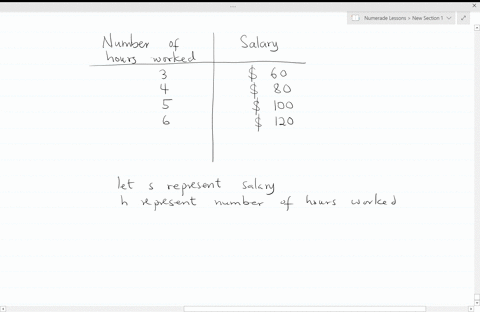 Numerade Lessons › New Section 1
Number of hours worked Salary
3 $ 60
4 $ 80
5 $ 100
6 $ 120
let s represent salary
h represent number of hours worked